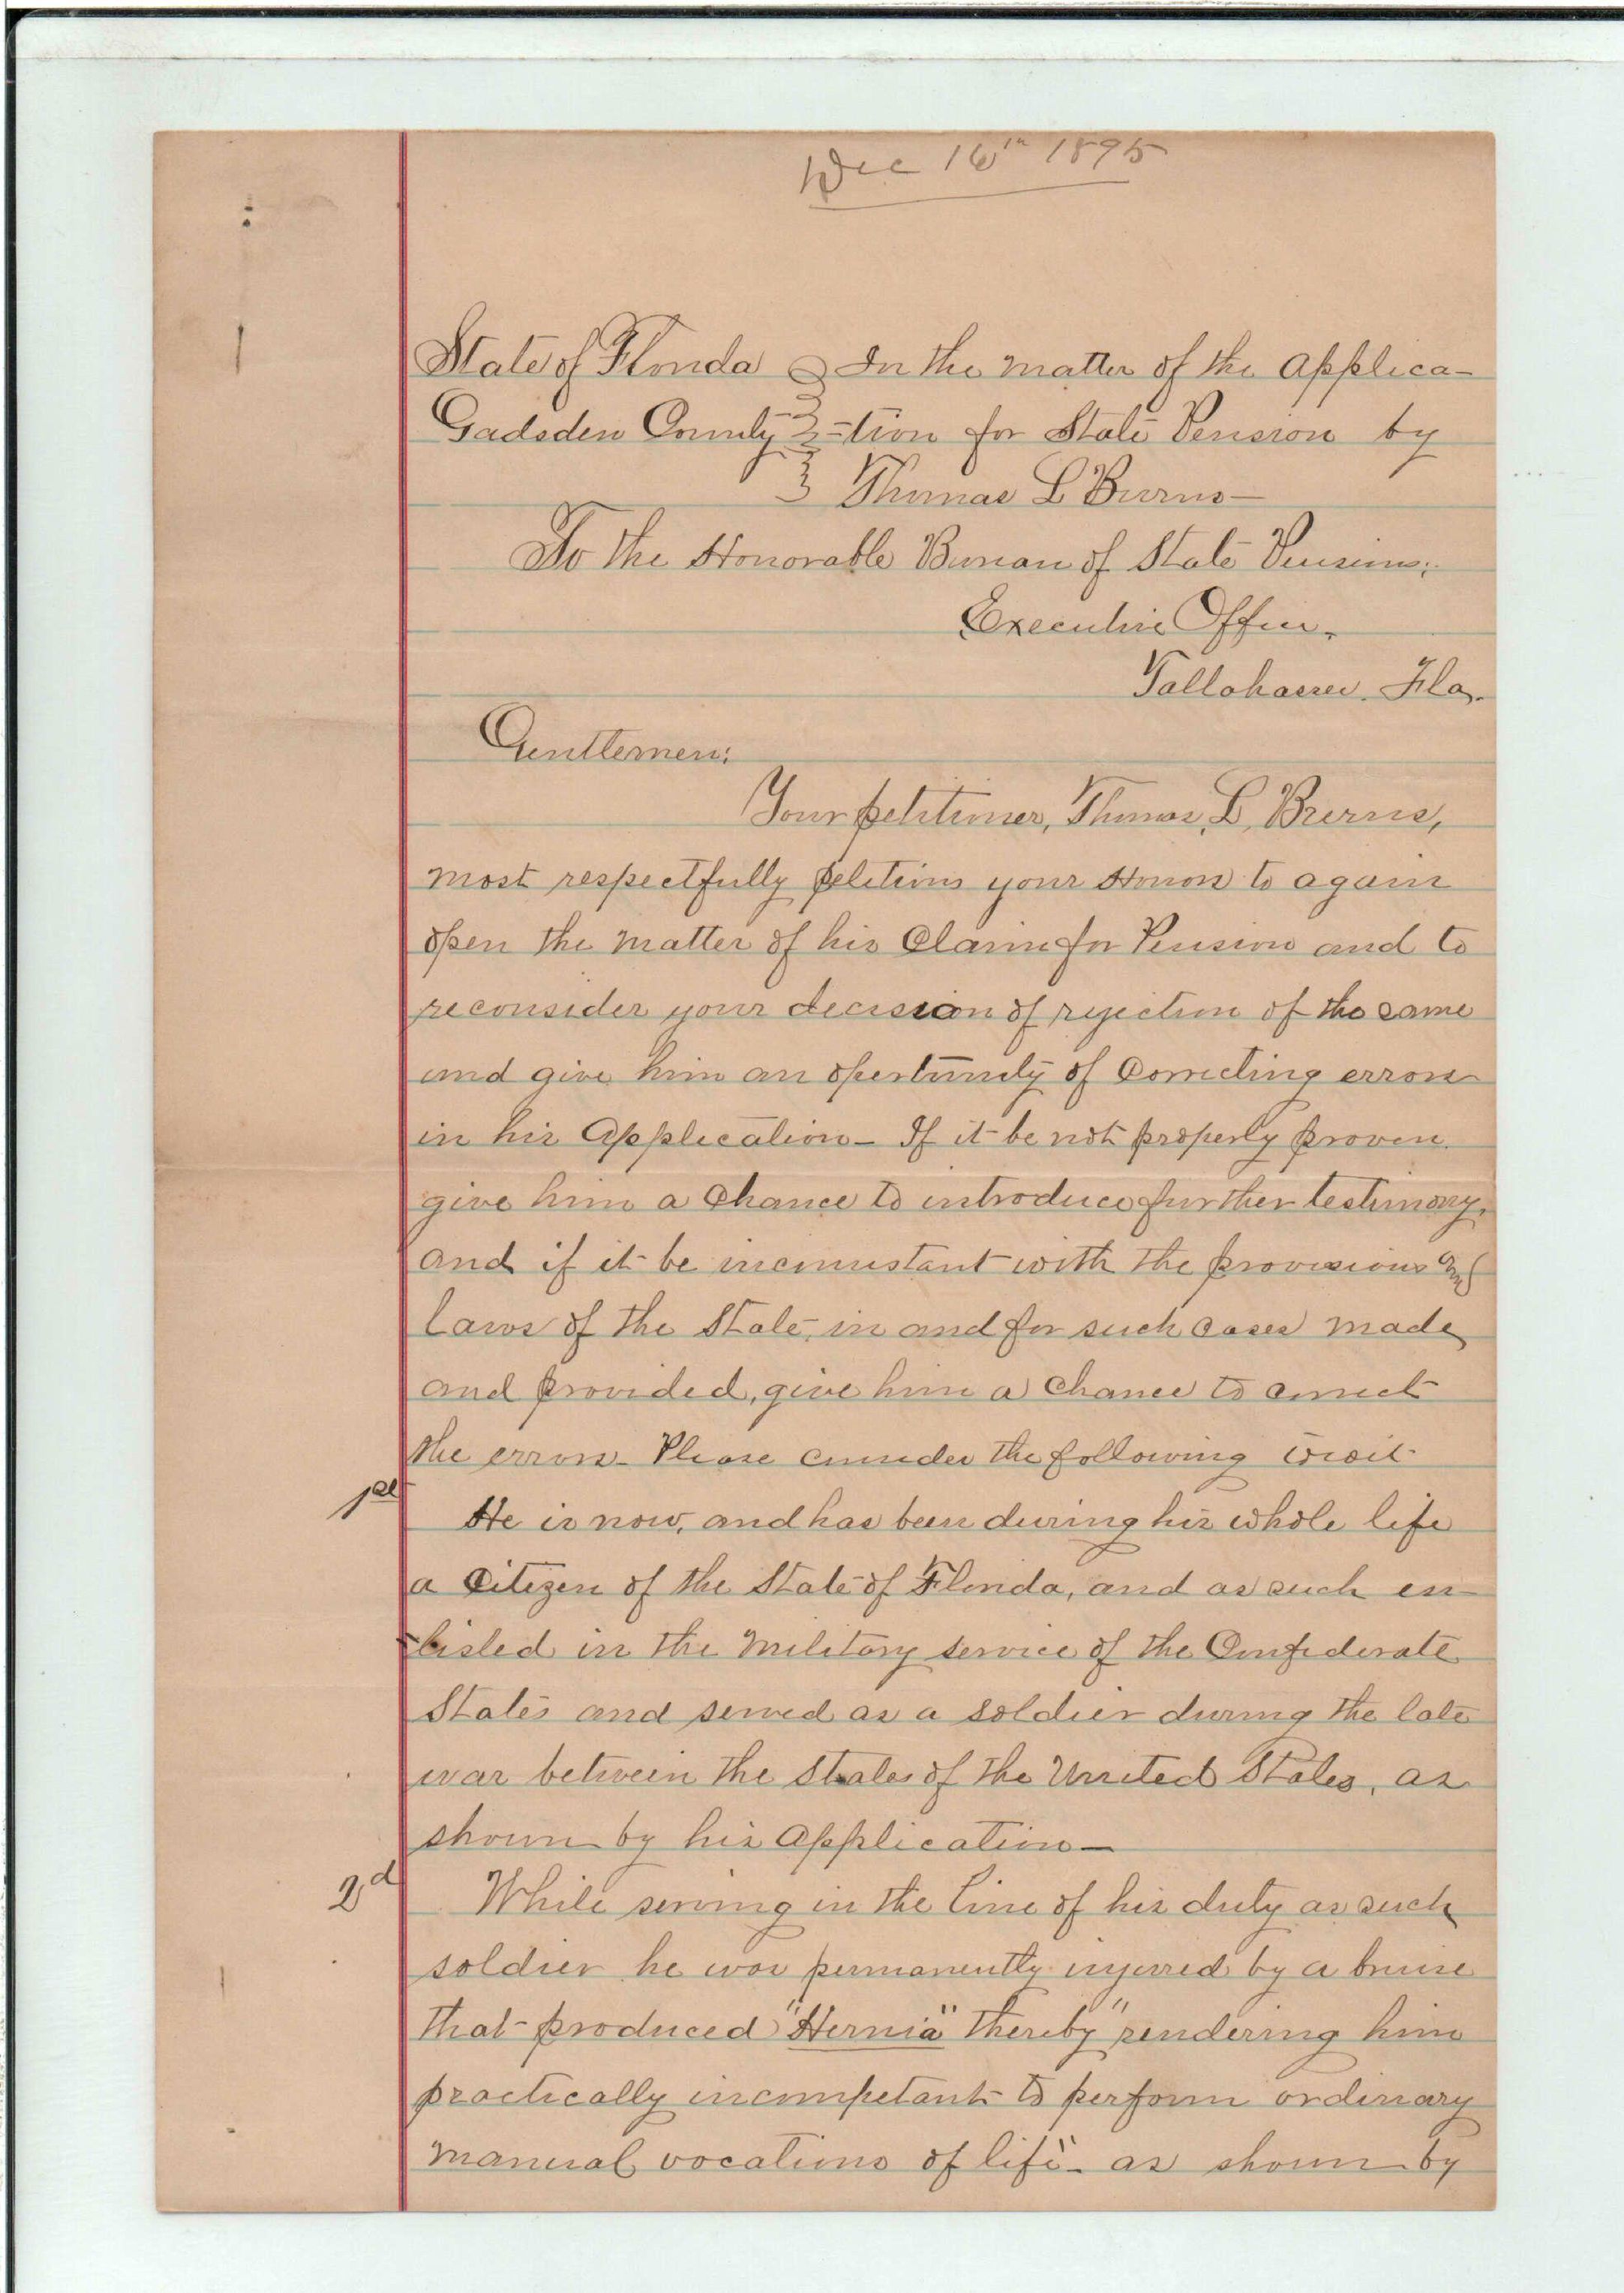 Dec 16th 1895
State of Florida } In the matter of the Applica-
Gadsden County } -tion for State Pension by
} Thomas L Burns-
To the Honorable Bureau of State Pensions:
Executive Office,
Tallahassee. Fla.
Gentlemen:
Your petitioner, Thomas, L, Burns,
most respectfully petitions your Honors to again
open the matter of his Claim for Pension and to
reconsider your decission of rejection of the same
and give him an opertunity of Correcting errors
in his Application- If it be not properly proven
give him a Chance to introduce further testimony,
and if it be inconsistant with the provisions and
laws of the State, in and for such cases made
and provided, give him a Chance to correct
the errors- Please consider the following towit
1st He is now, and has been during his whole life
a Citizen of the State of Florida, and as such en-
listed in the Military service of the Confederate
States and served as a soldier during the late
war between the States of the United States, as
shown by his Application-
2d While serving in the line of his duty as such
soldier he was permanently injured by a bruise
that produced "Hernia" thereby" rendering him
practically incompetant to perform ordinary
manual vocations of life- as shown by